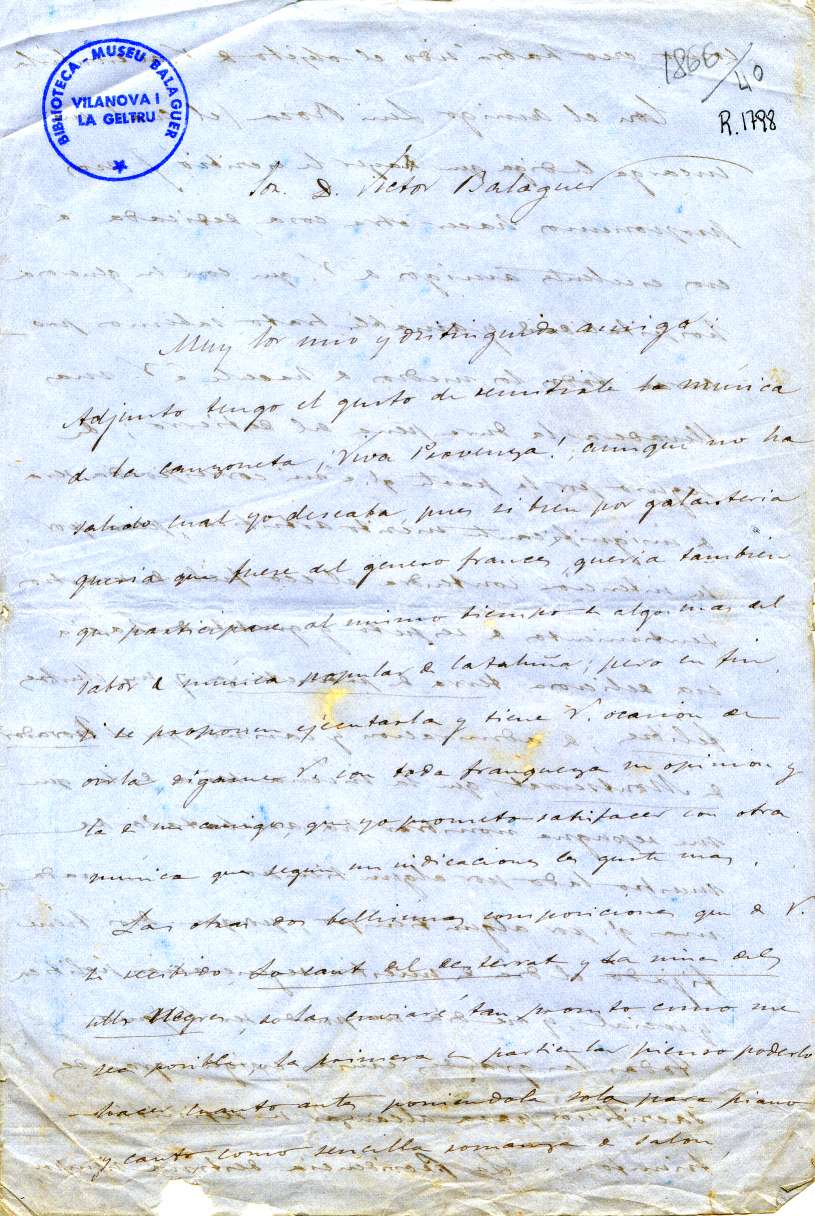 BIBLIOTECA - MUSEU BALAGUER
VILANOVA I
LA GELTRU
1866/40
R.1798
Sor. D. Victor Balaguer
Muy Sor mio y distinguido amigo:
Adjunto tengo el gusto de remitirle la música
de la canzoneta ¡Viva Provenza! aunque no ha
salido cual yo deseaba, pues si bien por galanteria
queria que fuese del género frances, queria tambien
que participase al mismo tiempo de algo mas del
sabor de música popular de Cataluña; pero en fin,
si se proponen ejecutarla y tiene V. ocasion de
oirla digame V. con toda franqueza su opinion y
la de sus amigos, que yo prometo satisfacer con otra
música que segun sus indicaciones les guste mas.
Las otras dos bellisimas composiciones que de V.
he recibido, Lo cant del y La nina dels
ulls negres, se las enviaré tan pronto como me
sea posible, la primera en particular pienso poderlo
hacer cuanto antes poniéndola sola para piano
y canto como sencilla romanza de salon,